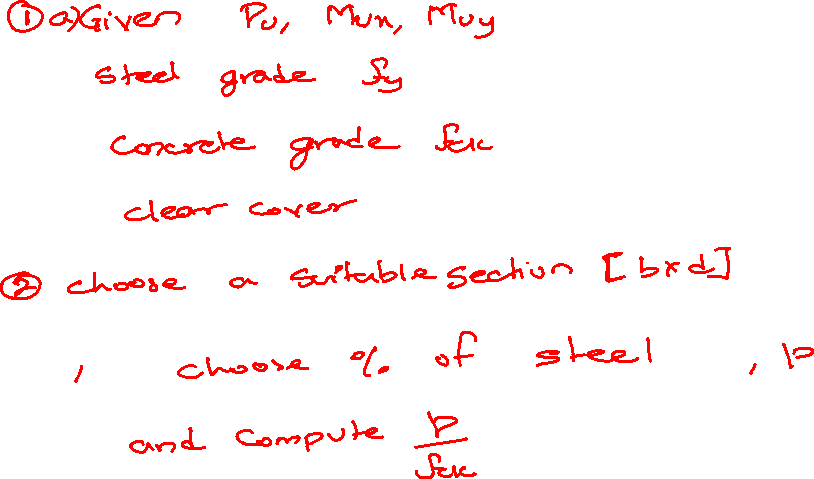 ① a) Given Pu, Mux, Muy
steel grade fy
concrete grade fck
clear cover
② choose a suitable section [b×d]
, choose % of steel , p
and compute p/fck